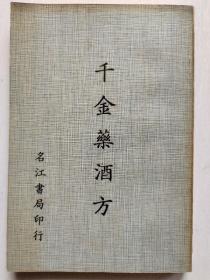 千金藥酒方
名江書局印行